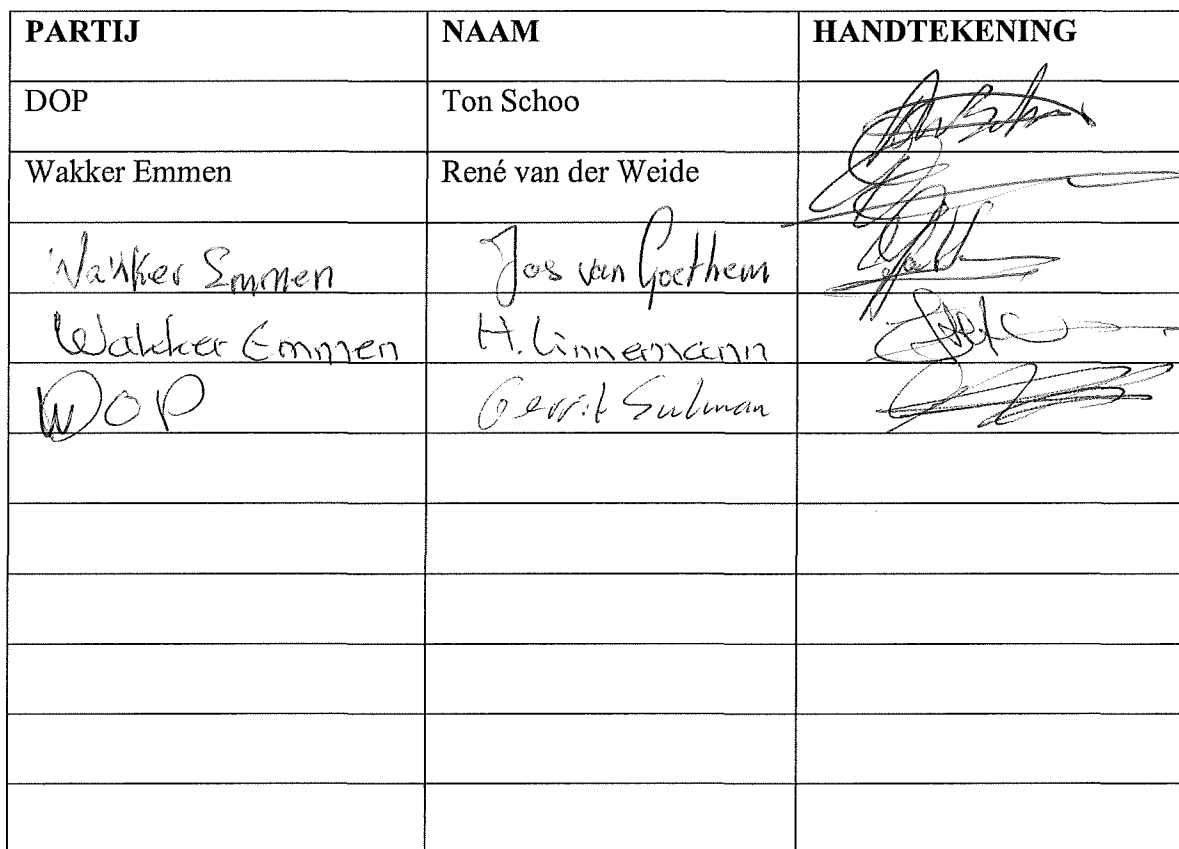 PARTIJ NAAM HANDTEKENING
DOP Ton Schoo
Wakker Emmen René van der Weide
Wakker Emmen Jos van Goethem
Wakker Emmen H. Linnemann
DOP Gerrit